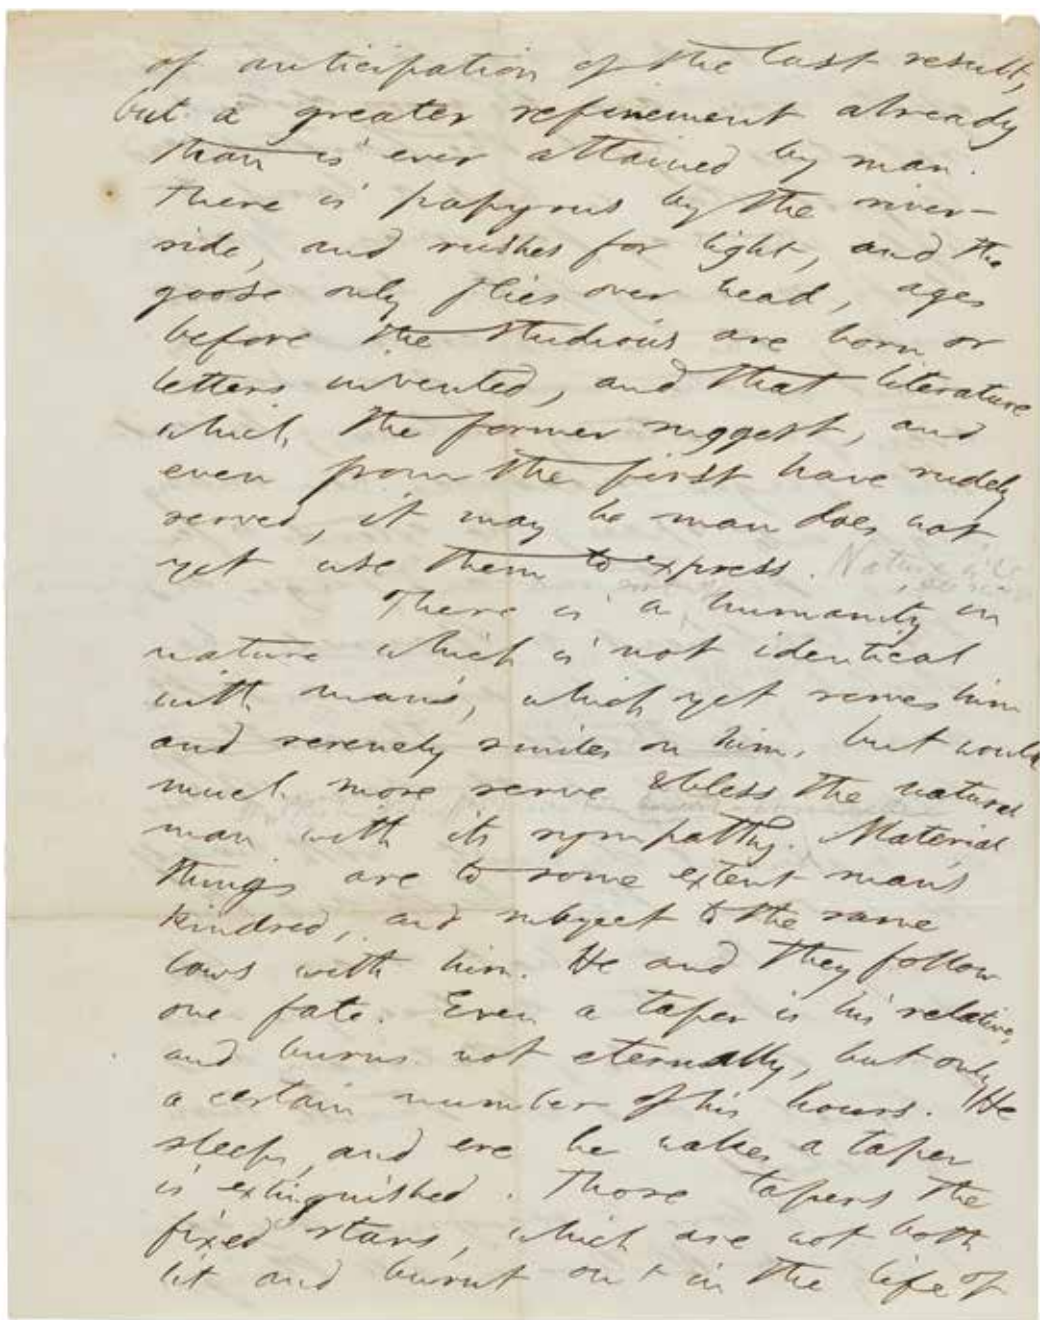 of anticipation of the last result,
but a greater refinement already
than is ever attained by man.
There is papyrus by the river-
side, and rushes for light, and the
goose only flies over head, ages
before the studious are born or
letters invented, and that literature
which the former suggest, and
even from the first have rudely
served, it may be man does not
yet use them to express. Nature
There is a humanity in
nature which is not identical
with man's, which yet serves him
and serenely smiles on him, but would
much more serve & bless the natural
man with its sympathy. Material
things are to some extent man's
kindred, and subject to the same
laws with him. He and they follow
one fate. Even a taper is his relative,
and burns not eternally, but only
a certain number of his hours. He
sleeps, and ere he wakes a taper
is extinguished. Those tapers the
fixed stars, which are not both
lit and burnt out in the life of